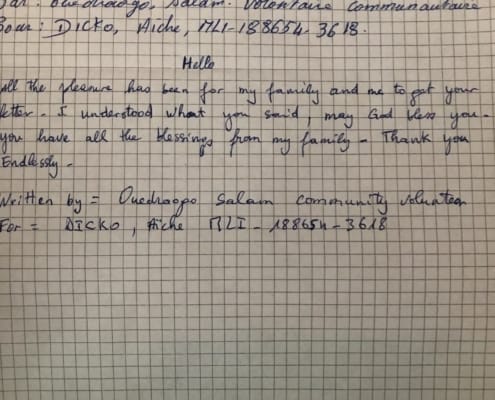 Par: Ouedraogo, Salam. Volontaire communautaire
Pour: DICKO, Aiche, MLI-188654-3618.
Hello
All the pleasure has been for my family and me to get your
letter - I understood what you said, may God bless you -
you have all the blessings from my family - Thank you
Endlessly -
Written by = Ouedraogo Salam community volunteer
For = DICKO, Aiche MLI - 188654-3618